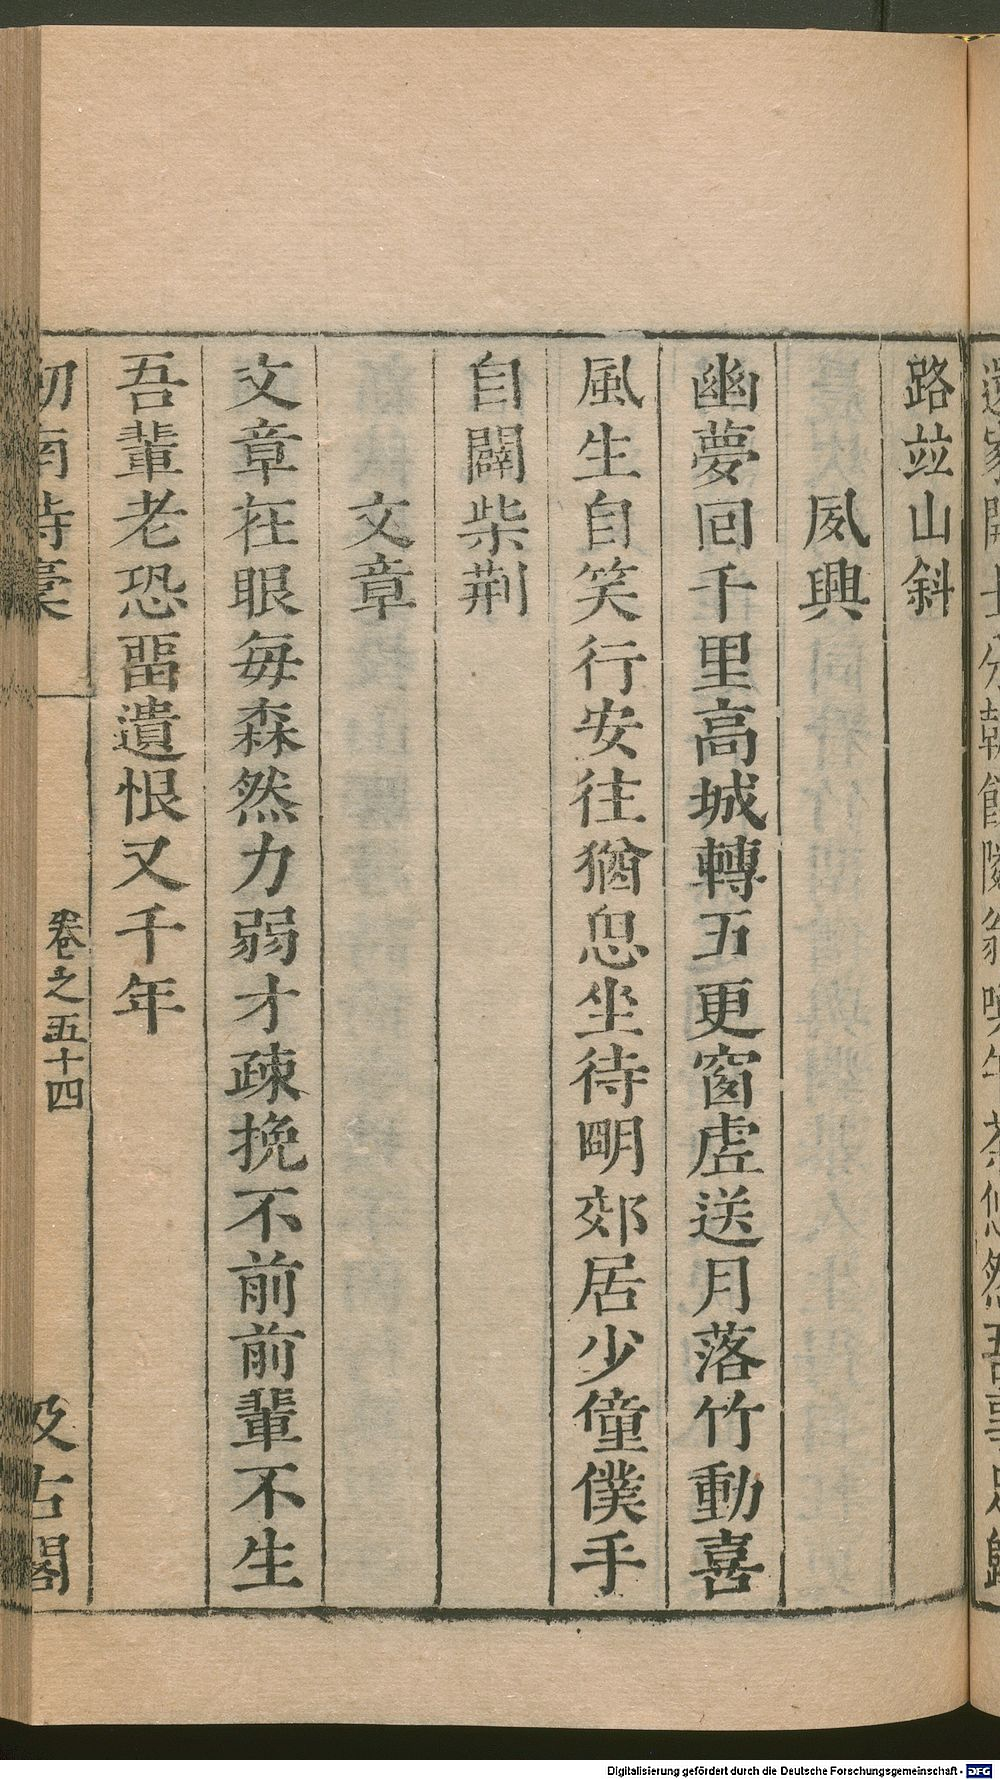 路竝山斜
夙興
幽夢回千里高城轉五更窗虛送月落竹動喜
風生自笑行安往猶怱坐待明郊居少僮僕手
自闢柴荆
文章
文章在眼每森然力弱才疎挽不前前輩不生
吾輩老恐留遺恨又千年
卷之五十四
汲古閣
Digitalisierung gefördert durch die Deutsche Forschungsgemeinschaft - DFG